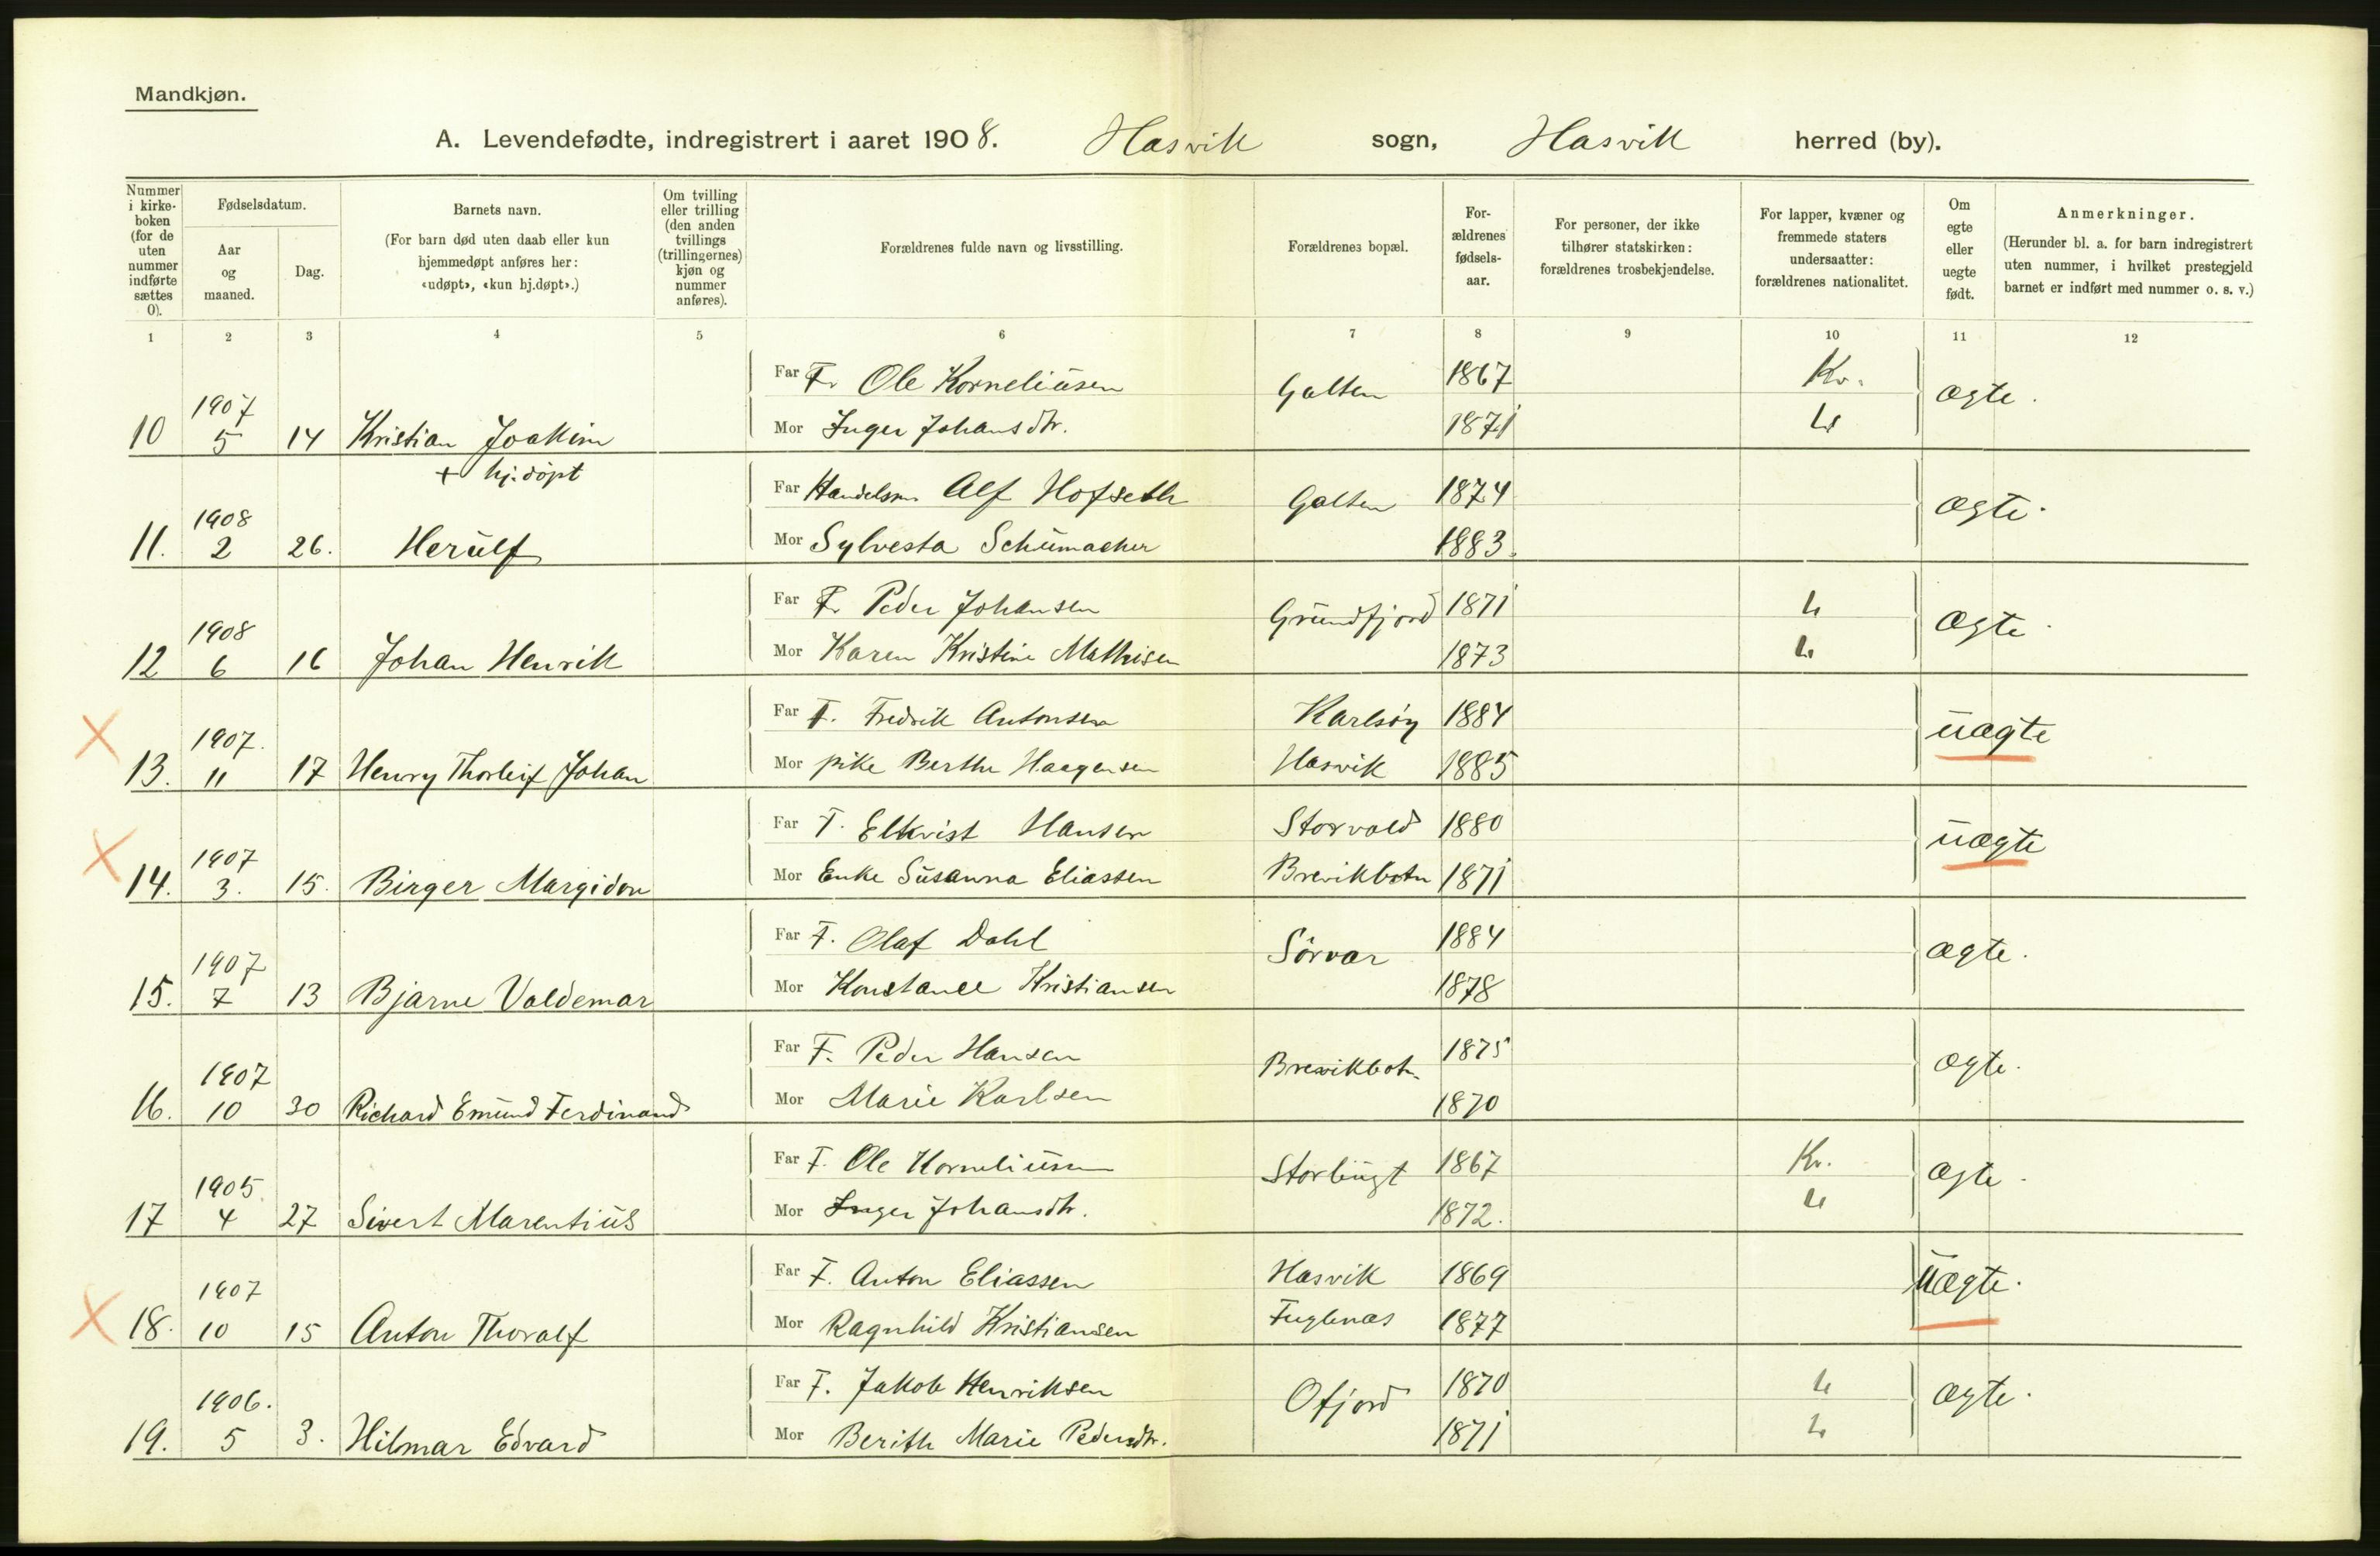 Mandkjøn.
A. Levendefødte, indregistrert i aaret 1908. Hasvik sogn, Hasvik herred (by).
Nummer i kirke-boken (for de uten nummer indførte sættes 0).
Fødselsdatum.
Aar og maaned.
Dag.
Barnets navn.
(For barn død uten daab eller kun hjemmedøpt anføres her: «udøpt», «kun hj.døpt».)
Om tvilling eller trilling (den anden tvillings (trillingernes) kjøn og nummer anføres).
Forældrenes fulde navn og livsstilling.
Forældrenes bopæl.
For-ældrenes fødsels-aar.
For personer, der ikke tilhører statskirken: forældrenes trosbekjendelse.
For lapper, kvæner og fremmede staters undersaatter: forældrenes nationalitet.
Om egte eller uegte født.
Anmerkninger.
(Herunder bl. a. for barn indregistrert uten nummer, i hvilket prestegjeld barnet er indført med nummer o. s. v.)
1 2 3 4 5 6 7 8 9 10 11 12
Far F. Ole Korneliusen Galten 1867 Kv. ægte.
10 1907 5 14 Kristian Joakim Mor Inger Johansdtr. 1871 L
+ hj.døpt
Far Handelsm. Alf Hofseth Galten 1874 ægte.
11. 1908 2 26. Herulf Mor Sylvesta Schumacher 1883.
Far F. Peder Johansen Grundfjord 1871 L ægte.
12 1908 6 16 Johan Henrik Mor Karen Kristine Mathisen 1873 L
Far F. Fredrik Antonsen Karlsøy 1884 uægte
X 13. 1907. 11 17 Henry Thorleif Johan Mor pike Berthe Haagensen Hasvik 1885
Far F. Elkvist Hansen Storvold 1880 uægte
X 14. 1907 3. 15. Birger Margidon Mor Enke Susanna Eliassen Brevikbotn 1871
Far F. Olaf Dahl Sørvær 1884 ægte.
15. 1907 7 13 Bjarne Valdemar Mor Konstance Kristiansen 1878
Far F. Peder Hansen Brevikbotn 1875 ægte.
16. 1907 10 30 Richard Emund Ferdinand Mor Marie Karlsen 1870
Far F. Ole Korneliusen 1867 Kv. ægte.
17 1905 4 27 Sivert Marentius Mor Inger Johansdtr. 1872. L
Far F. Anton Eliassen Hasvik 1869 Uægte.
X 18. 1907 10 15 Anton Thoralf Mor Ragnhild Kristiansen Fuglenæs 1877
Far F. Jakob Henriksen Ofjord 1870 L ægte.
19. 1906. 5 3. Hilmar Edvard Mor Berith Marie Pedersdtr. 1871 L